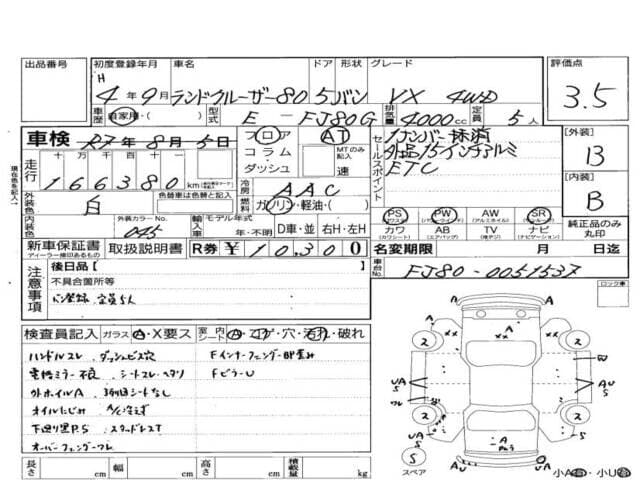 出品番号 初度登録年月 車名 ドア 形状 グレード 評価点
H
4年9月 ランドクルーザー80 5 バン VX 4WD 3.5
車歴 自家用・( ) 型式 E-FJ80G 排気量 4000cc 定員 5人
車検 R7年8月5日 フロア AT
コラム MTのみ記入
ダッシュ 速
セールスポイント
1ナンバー抹消
社外15インチアルミ
ETC
[外装]
B
[内装]
B
現在色を記入
走行 十 万 千 百 十 一
166380 km
冷房 AAC
外装色 白 燃料 ガソリン・軽油・( )
内装色 外装カラーNo. 045 輸入車 モデル年式 年・不明 D車・並 右H・左H
PS PW AW SR
(パワステ) (パワーウインドウ) (アルミホイル) (サンルーフ)
カワ AB TV ナビ
(カワシート) (エアバッグ) (地デジ) (ナビゲーション)
純正品のみ丸印
新車保証書 取扱説明書 R券 ¥10,300 名変期限 月 日迄
ディーラー捺印あるもの
車台No. FJ80-0051537
注意事項 後日品[ ]
不具合箇所等
バン登録、定員5人
ロック車
検査員記入 ガラス A・X要ス 室内シート A・コゲ・穴・汚れ・破れ
ハンドルスレ、ダッシュビス穴 Fインナーフェンダー BP歪み
電格ミラー不良 シートスレ・ヘタリ FピラーU
外ホイルA 3列目シートなし
オイルにじみ A/C冷えず
下廻り黒P.S スタッドレスT
オーバーフェンダーワレ
長さ cm 幅 cm 高さ cm 積載量 kg
スペア
小A有・小U有